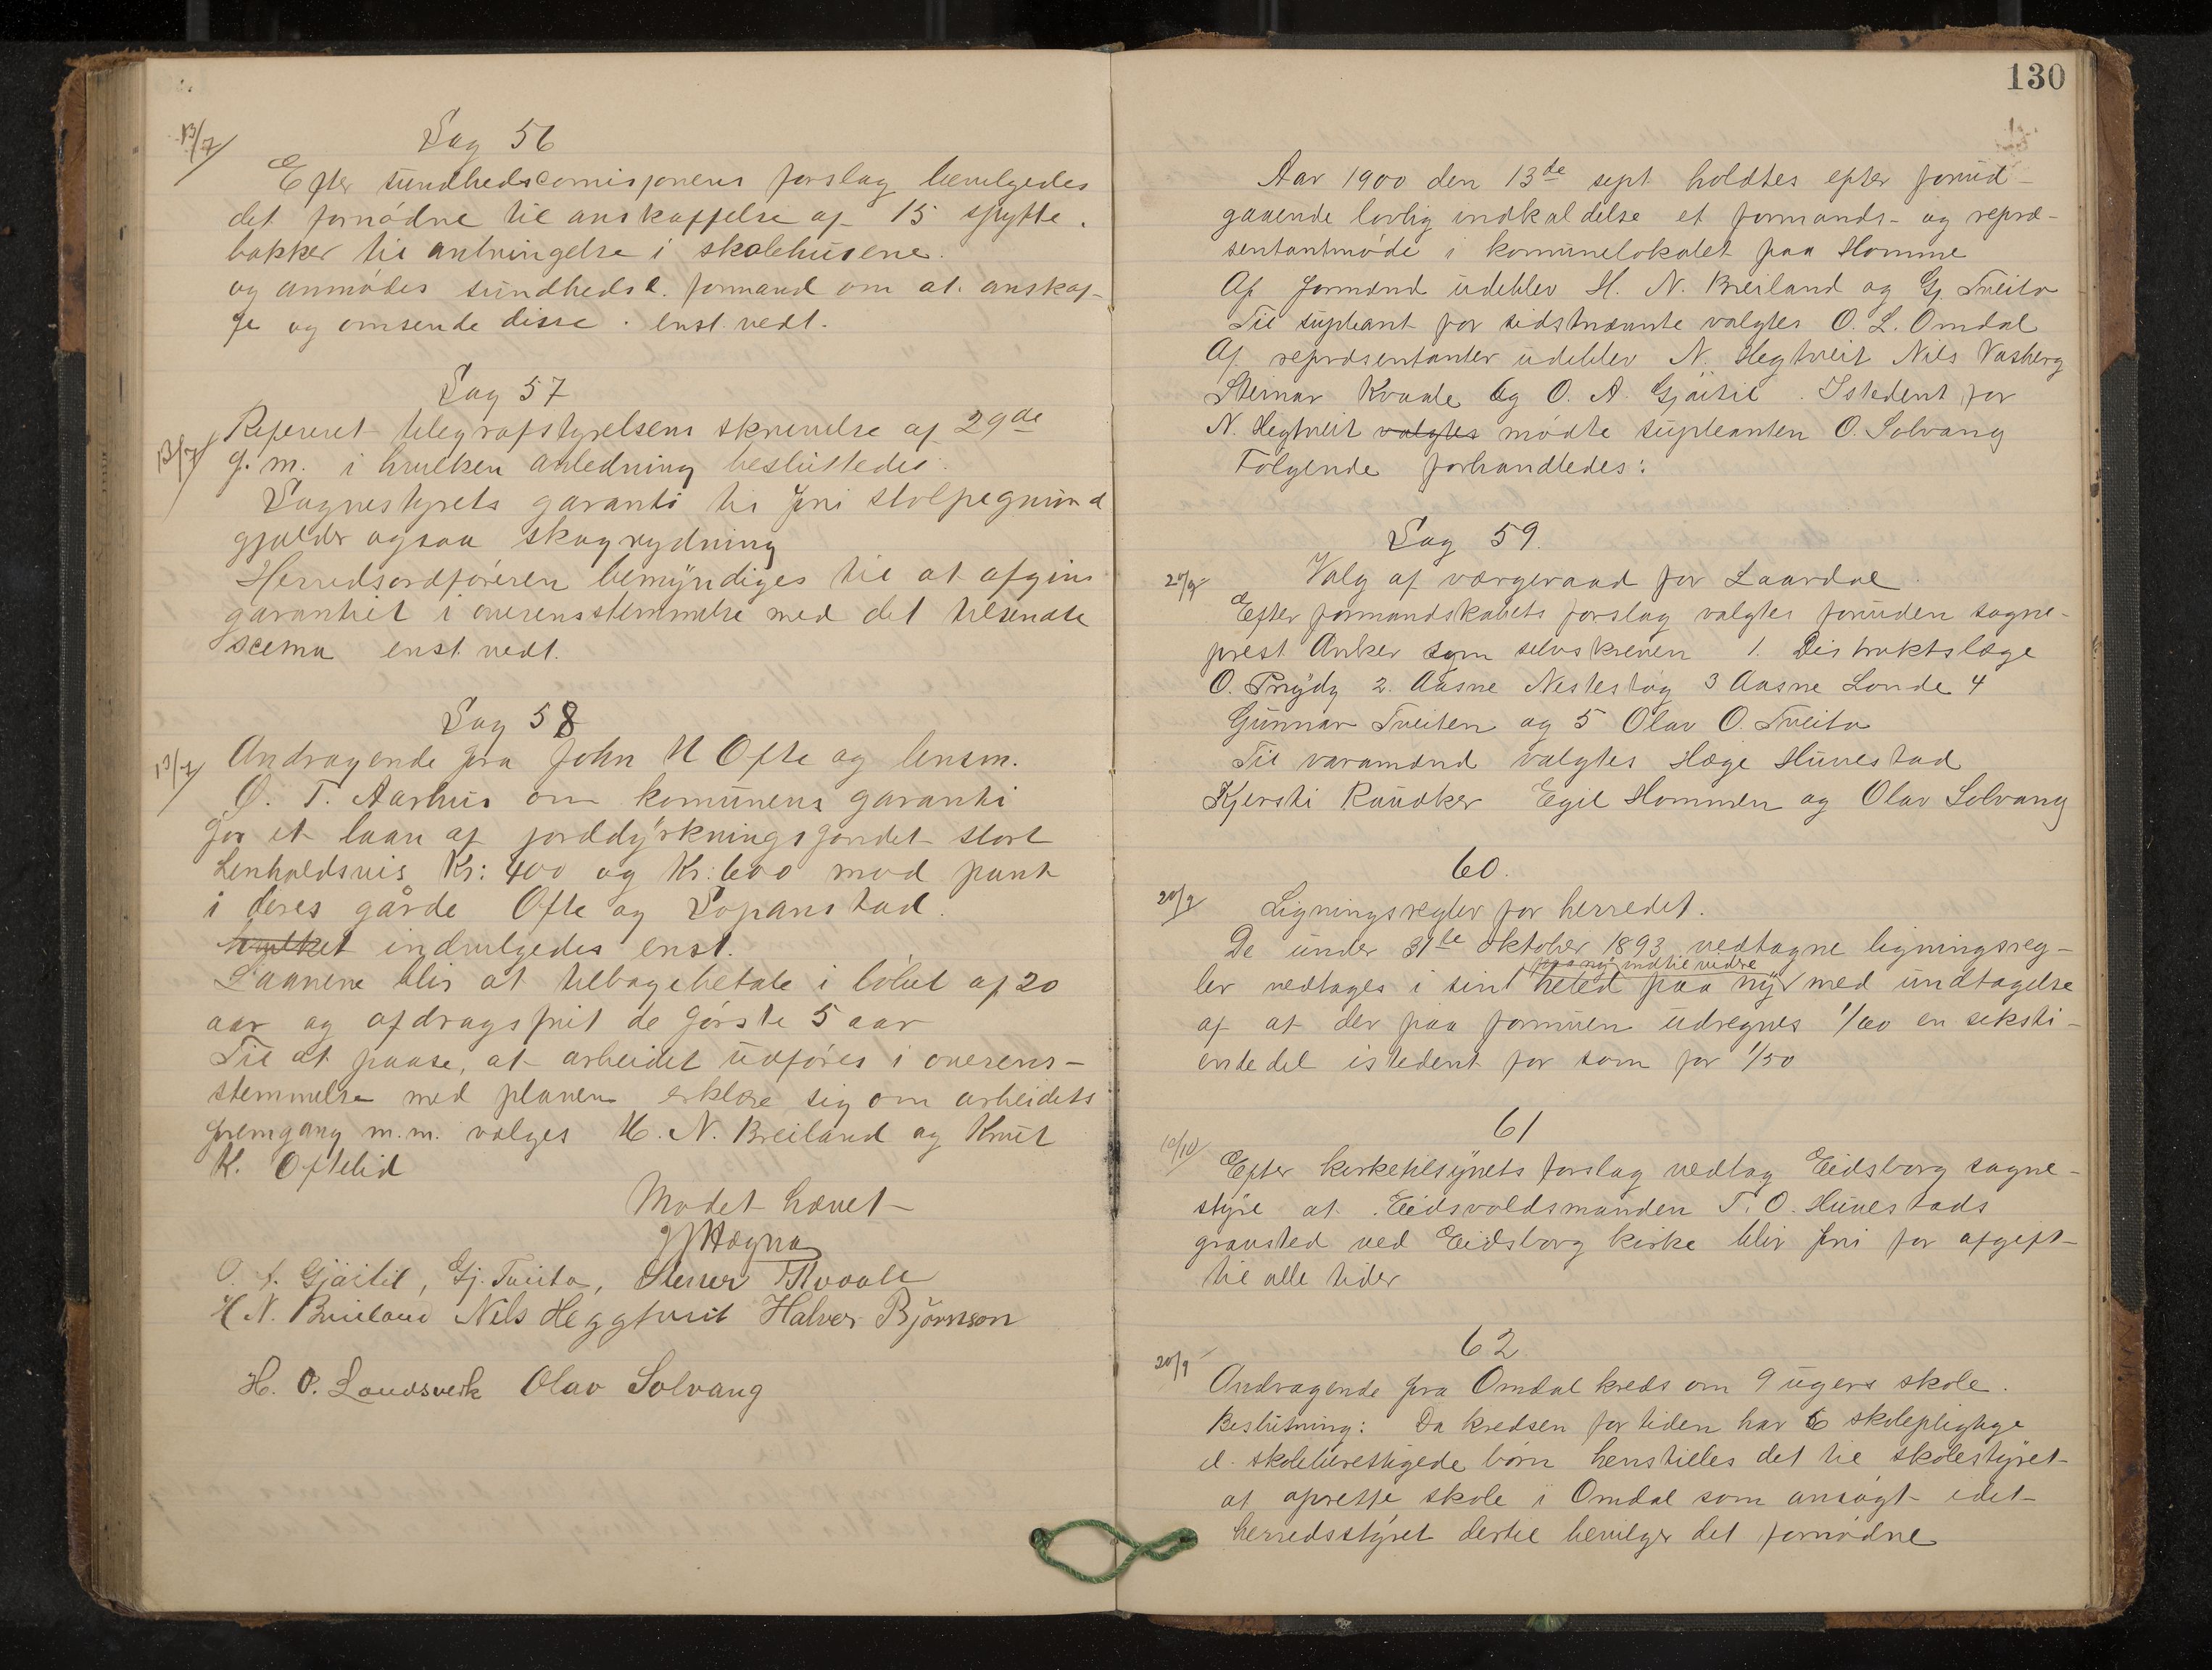 13/7
Sag 56
Efter sundhedscomisjonens forslag bevilgedes
det fornødne til anskaffelse af 15 spytte.
bakker til anbringelse i skolehusene.
og anmodes sundhedsk. formand om at anskaf-
fe og omsende disse. enst. vedt.
Sag 57
13/7
Referert telegrafstyrelsens skrivelse af 29de
f. m. i hvilken anledning besluttedes.
Sognestyrets garanti til fri stolpegrund
gjælder ogsaa skogrydning
Herredsordføreren bemyndiges til at afgive
garantiet i overensstemmelse med det tilsendte
scema enst. vedt.
Sag 58
13/7
Andragende fra John N Ofte og lensm.
O. T. Aarhus om komunens garanti
for et laan af jorddyrkningsfondet stort
henholdsvis Kr: 400 og Kr: 600 mod pant
i deres gårde Ofte og Sopanstad.
hvilket indvilgedes enst.
Laanene blir at tilbagebetale i løbet af 20
aar og afdragsfrit de første 5 aar
Til at paase, at arbeidet udføres i overens-
stemmelse med planen erklære sig om arbeidets
fremgang m.m. vælges H. N. Breiland og Knut
K. Oftelid
Mødet hævet
Hægna
O. A. Gjøitil, Gj. Tveito, Steinar Kvaale
H N. Breiland Nils Heggtveit Halvor Bjørnson
H. O. Landsverk Olav Solvang
130
Aar 1900 den 13de sept holdtes efter forud-
gaaende lovlig indkaldelse et formands- og repræ-
sentantmøde i komunelokalet paa Homme
Af formænd udeblev H. N. Breiland og Gj Tveito
Til supleant for sidstnævnte valgtes O. L. Omdal
Af repræsentanter udeblev N. Hegtveit Nils Vasberg
Steinar Kvaale og O. A. Gjøitil. Istedent for
N. Hegtveit valgtes mødte supleanten O. Solvang
Følgende forhandledes:
Sag 59.
20/9
Valg af værgeraad for Laardal
Efter formandskabets forslag valgtes foruden sogne-
prest Anker som selvskreven 1. Distriktslæge
O. Prydz 2. Aasne Nestestog 3 Aasne Londe 4
Gunnar Tveiten og 5 Olav O. Tveito
Til varamænd valgtes Hæge Hunestad
Kjersti Raudker Egil Hommen og Olav Solvang
60.
20/9
Ligningsregler for herredet.
De under 31te oktober 1893 vedtagne ligningsreg-
paa ny indtil vidre
ler vedtages i sin heled paa ny med undtagelse
af at der paa formuen udregnes 1/60 en seksti-
endedel istedent for som før 1/50
61
10/10
Efter kirketilsynets forslag vedtog Eidsborg sogne-
styre at Eidsvoldsmanden T. O. Hunestads
gravsted ved Eidsborg kirke blir fri for afgift
til alle tider
62
20/9
Andragende fra Omdal kreds om 9 ugers skole.
Beslutning: Da kredsen for tiden har 6 skolepligtige
el. skoleberettigede børn henstilles det til skolestyret
at oprette skole i Omdal som ansøgt idet
herredsstyret dertil bevilger det fornødne